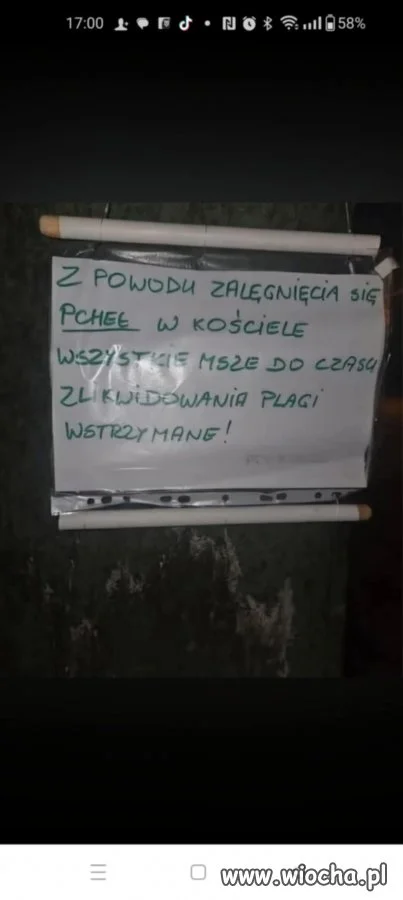 17:00
58%
Z POWODU ZALĘGNIĘCIA SIĘ
PCHEŁ W KOŚCIELE
WSZYSTKIE MSZE DO CZASU
ZLIKWIDOWANIA PLAGI
WSTRZYMANE!
www.wiocha.pl